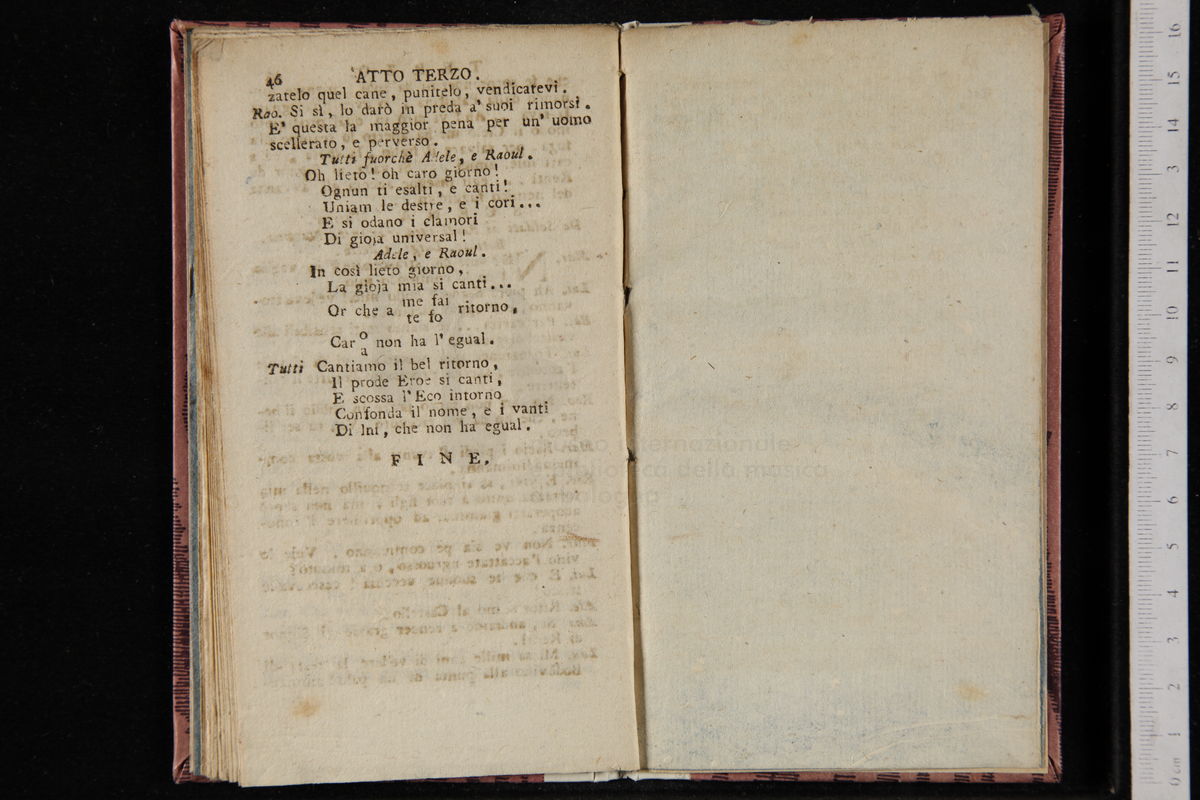 46 ATTO TERZO.
zatelo quel cane, punitelo, vendicatevi.
Rao. Si sì, lo darò in preda a' suoi rimorsi.
E' questa la maggior pena per un' uomo
scellerato, e perverso.
Tutti fuorchè Adele, e Raoul.
Oh lieto! oh caro giorno!
Ognun ti esalti, e canti!
Uniam le destre, e i cori...
E si odano i clamori
Di gioja universal!
Adele, e Raoul.
In così lieto giorno,
La gioja mia si canti...
Or che a me fai ritorno,
te fo
Car o non ha l' egual.
a
Tutti Cantiamo il bel ritorno,
Il prode Eroe si canti,
E scossa l' Eco intorno
Confonda il nome, e i vanti
Di lni, che non ha egual.
FINE.
museo internazionale
biblioteca della musica
bologna
16
15
14
13
12
11
10
9
8
7
6
5
4
3
2
1
0 cm